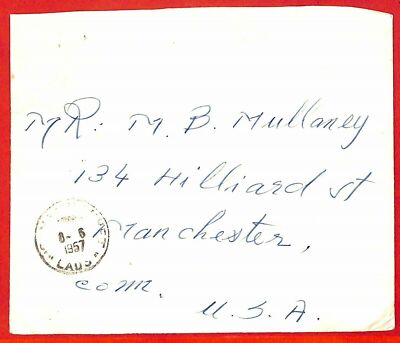 MR: M. B. Mullaney
134 Hilliard st
Manchester,
conn.
U. S. A.
8- 6
1957
LAOS